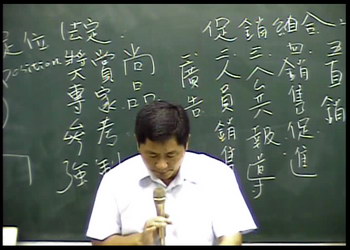 促銷組合:
廣告
二、人員銷售
三、公共報導
四、銷售促進
五、直銷
定位
Position
法定
獎賞
專家
參考
強制
尚品